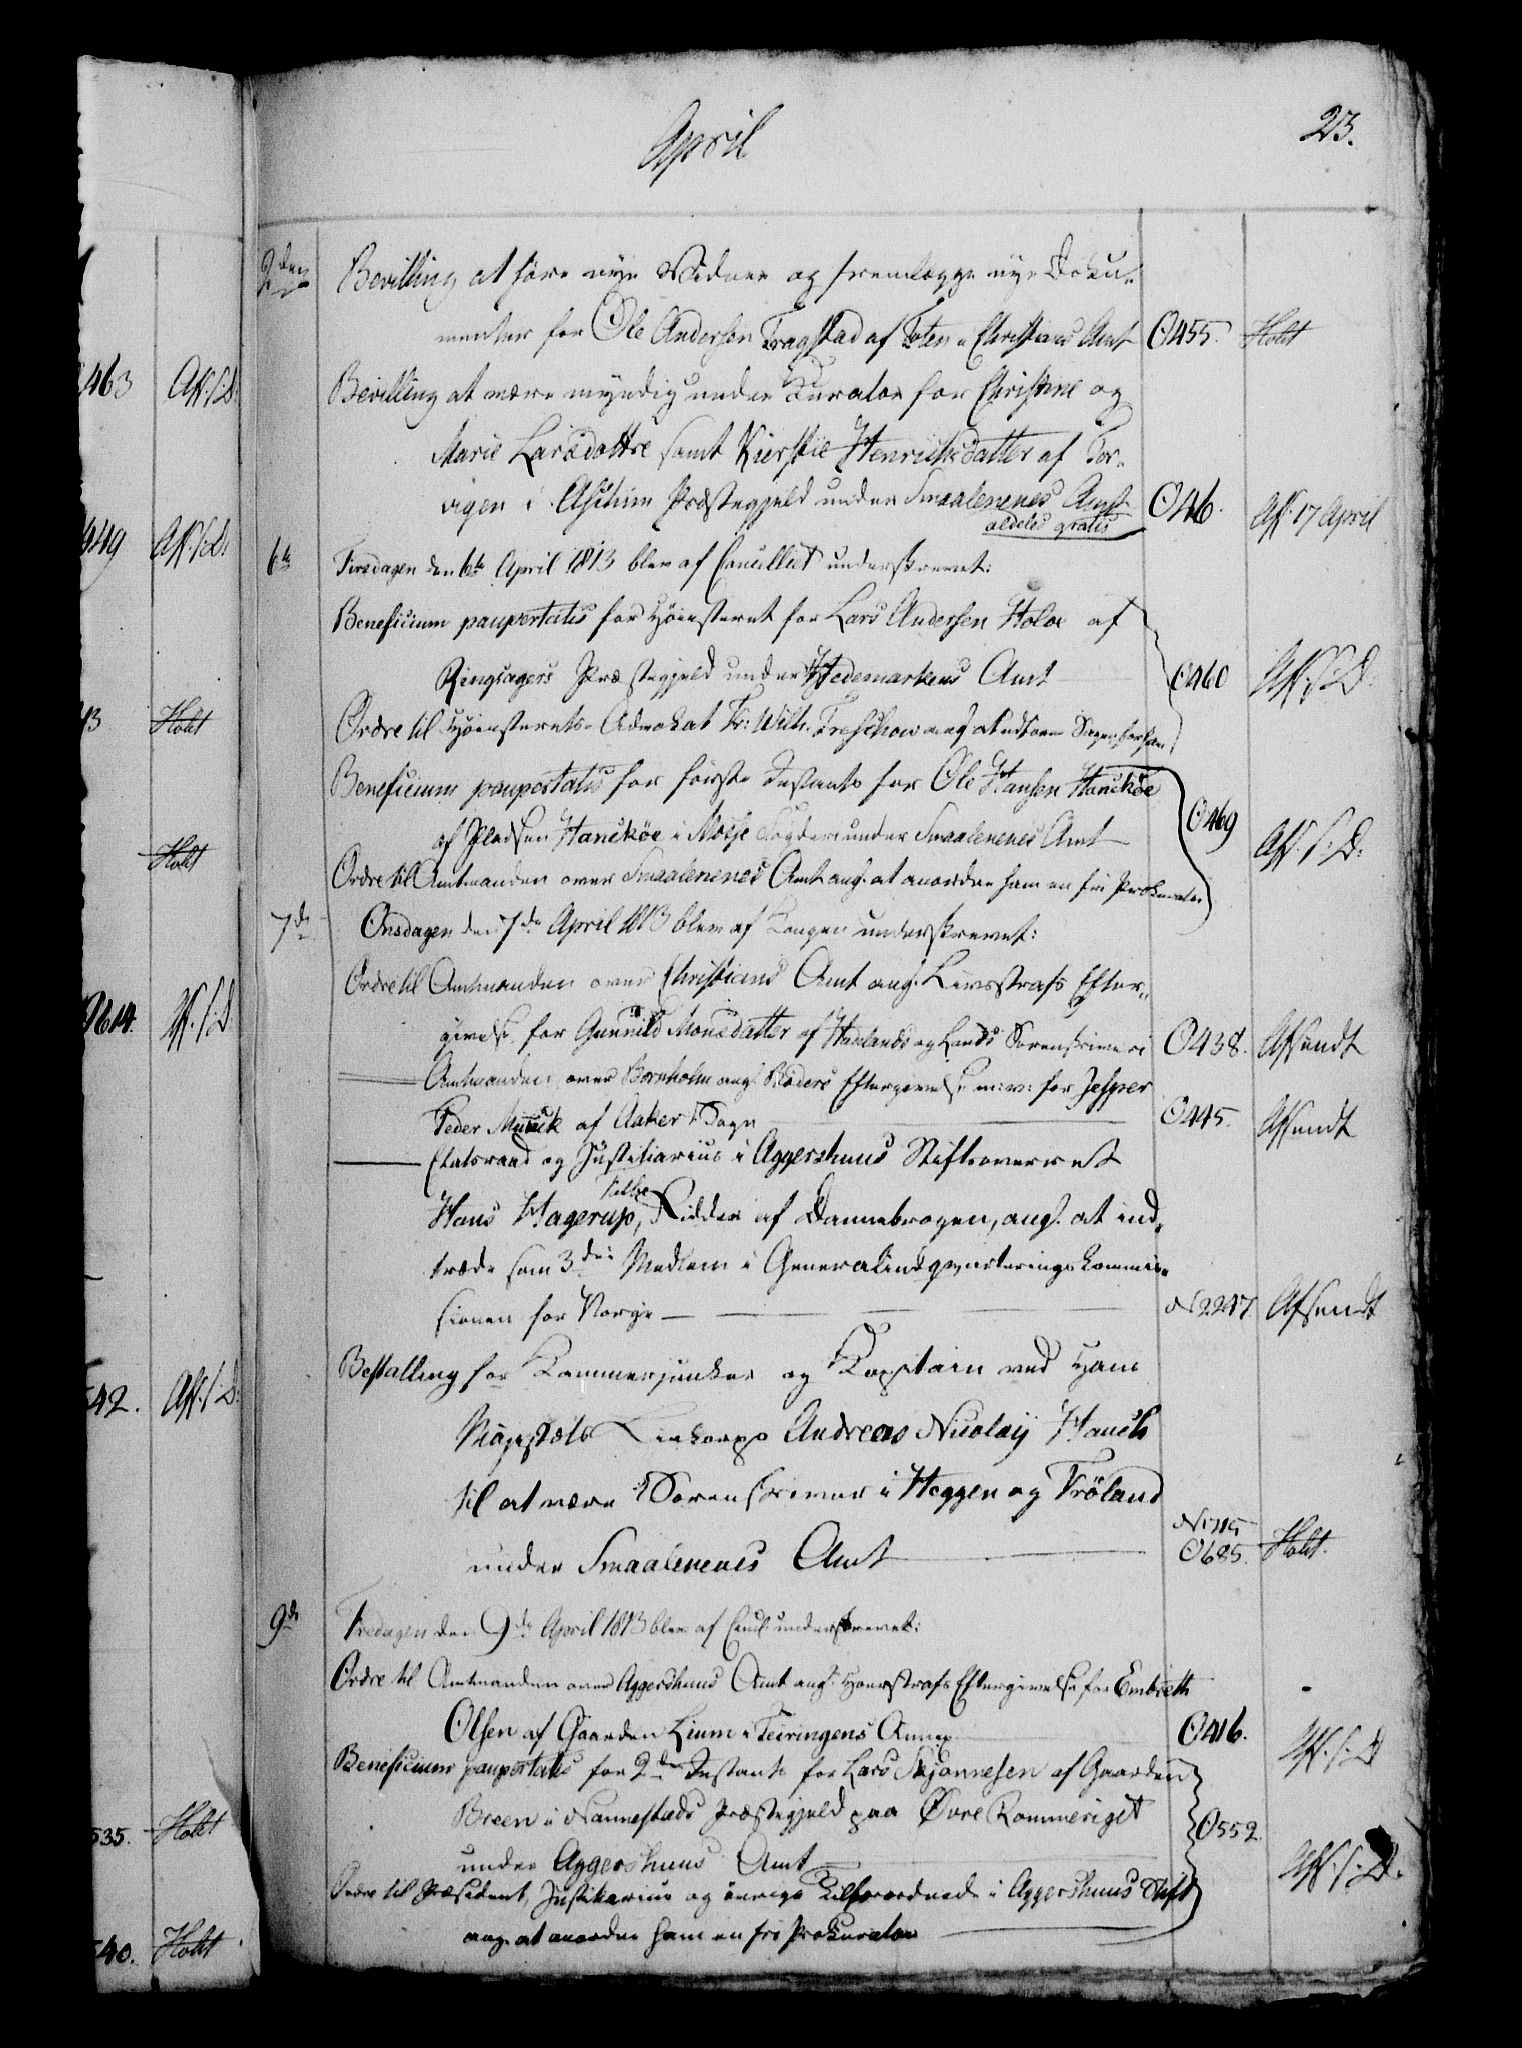 April
23.
2den
Bevilling at føre nye Vidner og fremlægge nye Doku-
menter for Ole Andersen Fragstad af Toten i Christians Amt O455. Holst
Bevilling at være myndig under Kurator for Christine og
Marie Larsdøttre samt Kierstie Henrichsdatter af Tor-
vigen i Aschim Præstegjeld under Smaalenenes Amt O46. Aff. 17 April
aldeles gratis
6te Tirsdagen den 6te April 1813 blev af Concilliet underskrevet:
Beneficium paupertatis for Høiesteret for Lars Andersen Holoe af
Ringsagers Præstegjeld under Hedemarkens Amt O460 Aff. s. D.
Ordre til Høiesterets-Advokat Fr: Wilh. Treschow ang. at udføre Sagen for ham
Beneficium paupertatis for første Instants for Ole Hansen Hanckøe
af Pladsen Hanckøe i Mosse Fogderi under Smaalenenes Amt O469 Aff. s. D.
Ordre til Amtmanden over Smaalenenes Amt ang. at anordne ham en fri Prokurator
7de Onsdagen den 7de April 1813 blev af Kongen underskrevet:
Ordre til Amtmanden over Christians Amt ang. Livsstrafs Efter-
givelse for Gunnild Monsdatter af Hadelands og Lands Sorenskriveri O438. Afsendt
Amtmanden over Bornholm ang. Bøders Eftergivelse m: v: for Jesper
Peder Munck af Aaker Sogn O445. Afsendt
Etatsraad og Justitiarius i Aggershuus Stiftsoverret
Falbe
Hans Hagerup, Ridder af Dannebrogen, ang. at ind-
træde som 3die Medlem i Generalindqvarterings Kommis-
sionen for Norge N2247. Afsendt
Bestalling for Kammerjunker og Kapitain ved Hans
Majestæts Livkorps Andreas Nicolay Hauch
til at være Sorenskriver i Heggen og Frøland
under Smaalenenes Amt N1715 O685. Holst.
9de Fredagen den 9de April 1813 blev af Conc. underskrevet:
Ordre til Amtmanden over Aggershuus Amt ang. Hoerstrafs Eftergivelse for Embreth
Olsen af Gaarden Lium i Feiringens Annex O416. Aff. s. D
Beneficium paupertatis for 2den Instants for Lars Skjønnesen af Gaarden
Breen i Nannestads Præstegjeld paa Øvre Rommeriget O552. Aff. s. D.
under Aggershuus Amt
Ordre til Præsident, Justitiarius og øvrige Tilforordnede i Aggershuus Stift
ang. at anordne ham en fri Prokurator
463 Aff. s. D.
449 Aff. s. D.
43 Holst
Holst
614. Aff. s. D
542. Aff. s. D.
535. Holst
540. Holst